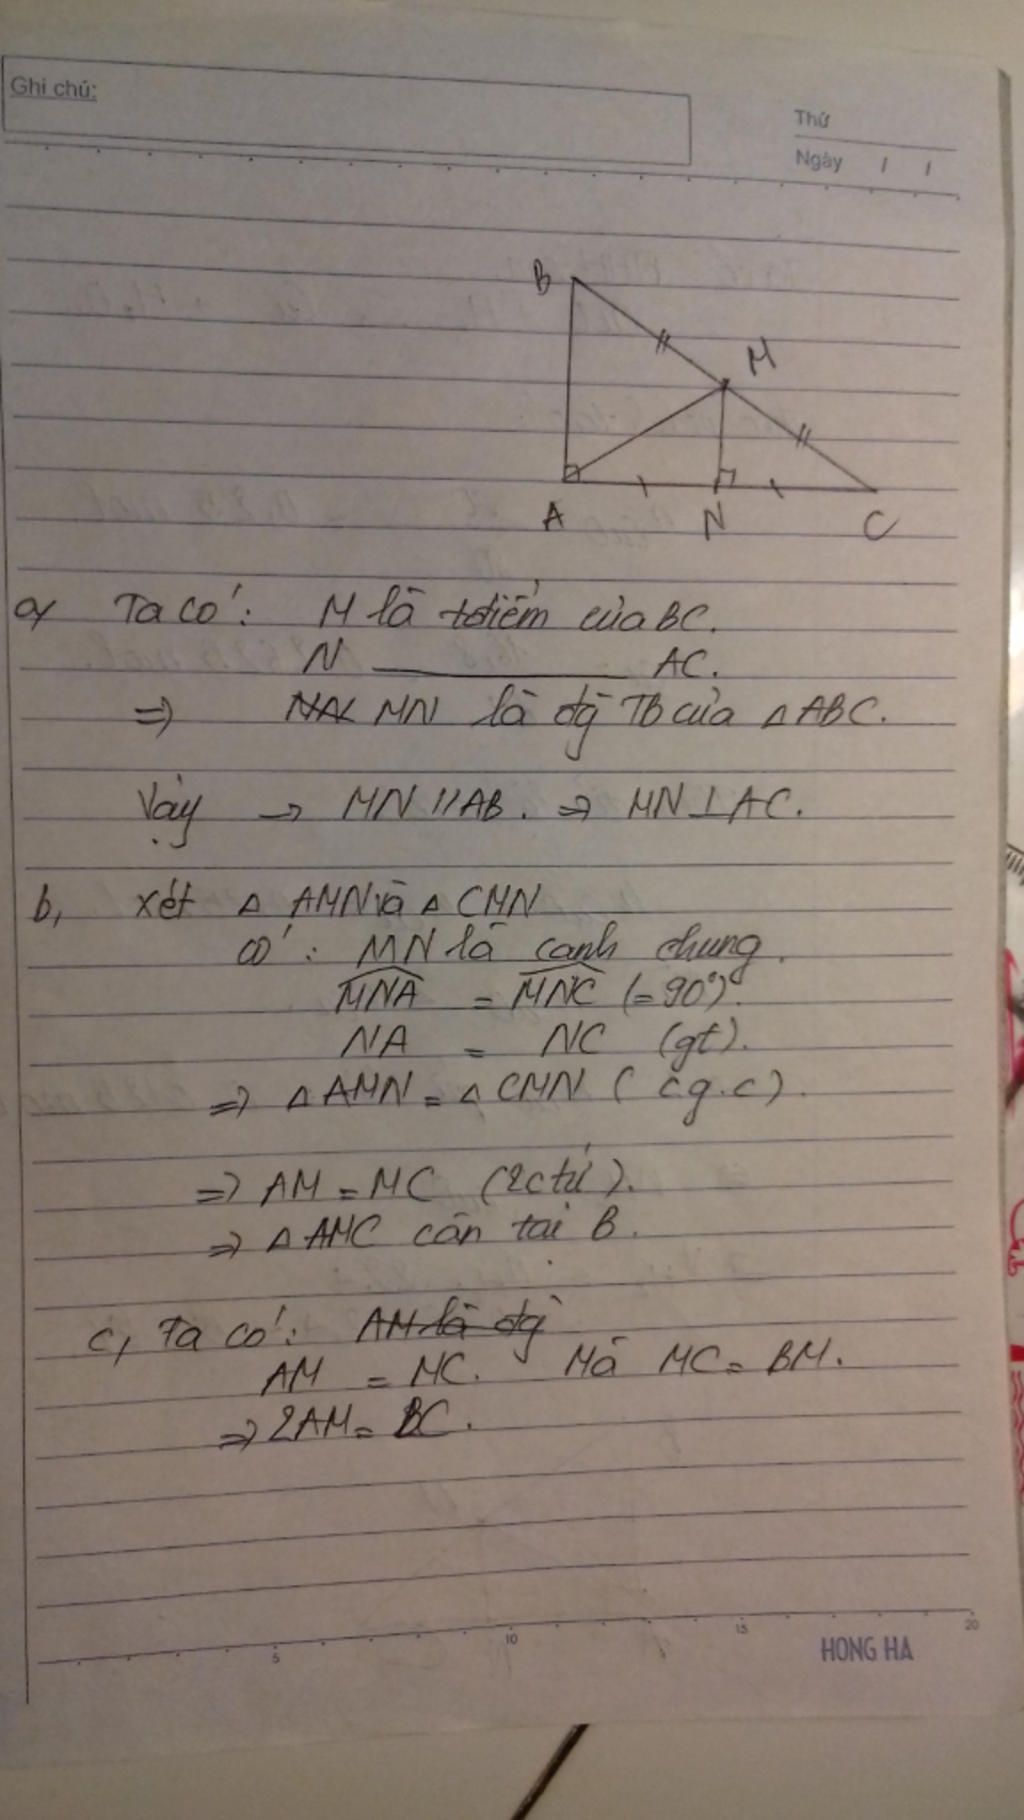 Ghi chú:
Thứ
Ngày / /
B
M
A N C
a, Ta có: M là tđiểm của BC.
N ———— AC.
=> MN là đg TB của △ABC.
Vậy → MN // AB. => MN ⊥ AC.
b, xét △ AMN và △ CMN
có: MN là cạnh chung.
MNA = MNC (= 90°).
NA = NC (gt).
=> △ AMN = △ CMN ( c.g.c).
=> AM = MC (2c tứ).
=> △ AMC cân tại B.
c, Ta có: AM là đg
AM = MC. Mà MC = BM.
=> 2AM = BC.
5 10 15 20
HONG HA